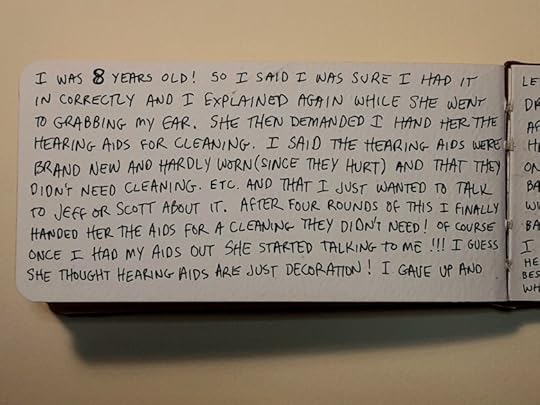 I WAS 8 YEARS OLD! SO I SAID I WAS SURE I HAD IT
IN CORRECTLY AND I EXPLAINED AGAIN WHILE SHE WENT
TO GRABBING MY EAR. SHE THEN DEMANDED I HAND HER THE
HEARING AIDS FOR CLEANING. I SAID THE HEARING AIDS WERE
BRAND NEW AND HARDLY WORN (SINCE THEY HURT) AND THAT THEY
DIDN'T NEED CLEANING. ETC. AND THAT I JUST WANTED TO TALK
TO JEFF OR SCOTT ABOUT IT. AFTER FOUR ROUNDS OF THIS I FINALLY
HANDED HER THE AIDS FOR A CLEANING THEY DIDN'T NEED! OF COURSE
ONCE I HAD MY AIDS OUT SHE STARTED TALKING TO ME!!! I GUESS
SHE THOUGHT HEARING AIDS ARE JUST DECORATION! I GAVE UP AND